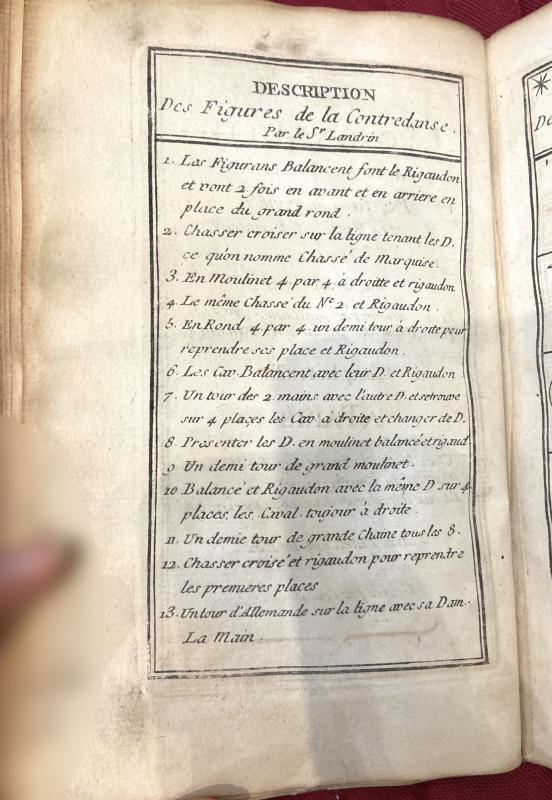 DESCRIPTION
Des Figures de la Contredanse.
Par le Sr Landrin
1. Les Figurans Balancent font le Rigaudon
et vont 2 fois en avant et en arriere en
place du grand rond.
2. Chasser croiser sur la ligne tenant les D.
ce qu'on nomme Chassé de Marquise.
3. En Moulinet 4 par 4 à droitte et rigaudon
4. Le même Chassé du No 2 et Rigaudon.
5. En Rond 4 par 4 un demi tour à droite pour
reprendre ses place et Rigaudon.
6. Les Cav. Balancent avec leur D. et Rigaudon
7. Un tour des 2 mains avec l'autre D. et se trouve
sur 4 plaçes les Cav. à droite et changer de D.
8. Presenter les D. en moulinet balancé et rigaud.
9 Un demi tour de grand moulinet.
10 Balancé et Rigaudon avec la même D sur 4
places, les Caval. toujour à droite.
11. Un demie tour de grande Chaine tous les 8.
12. Chasser croisé et rigaudon pour reprendre
les premieres places
13. Un tour d'Allemande sur la ligne avec sa Dam.
La Main.
*